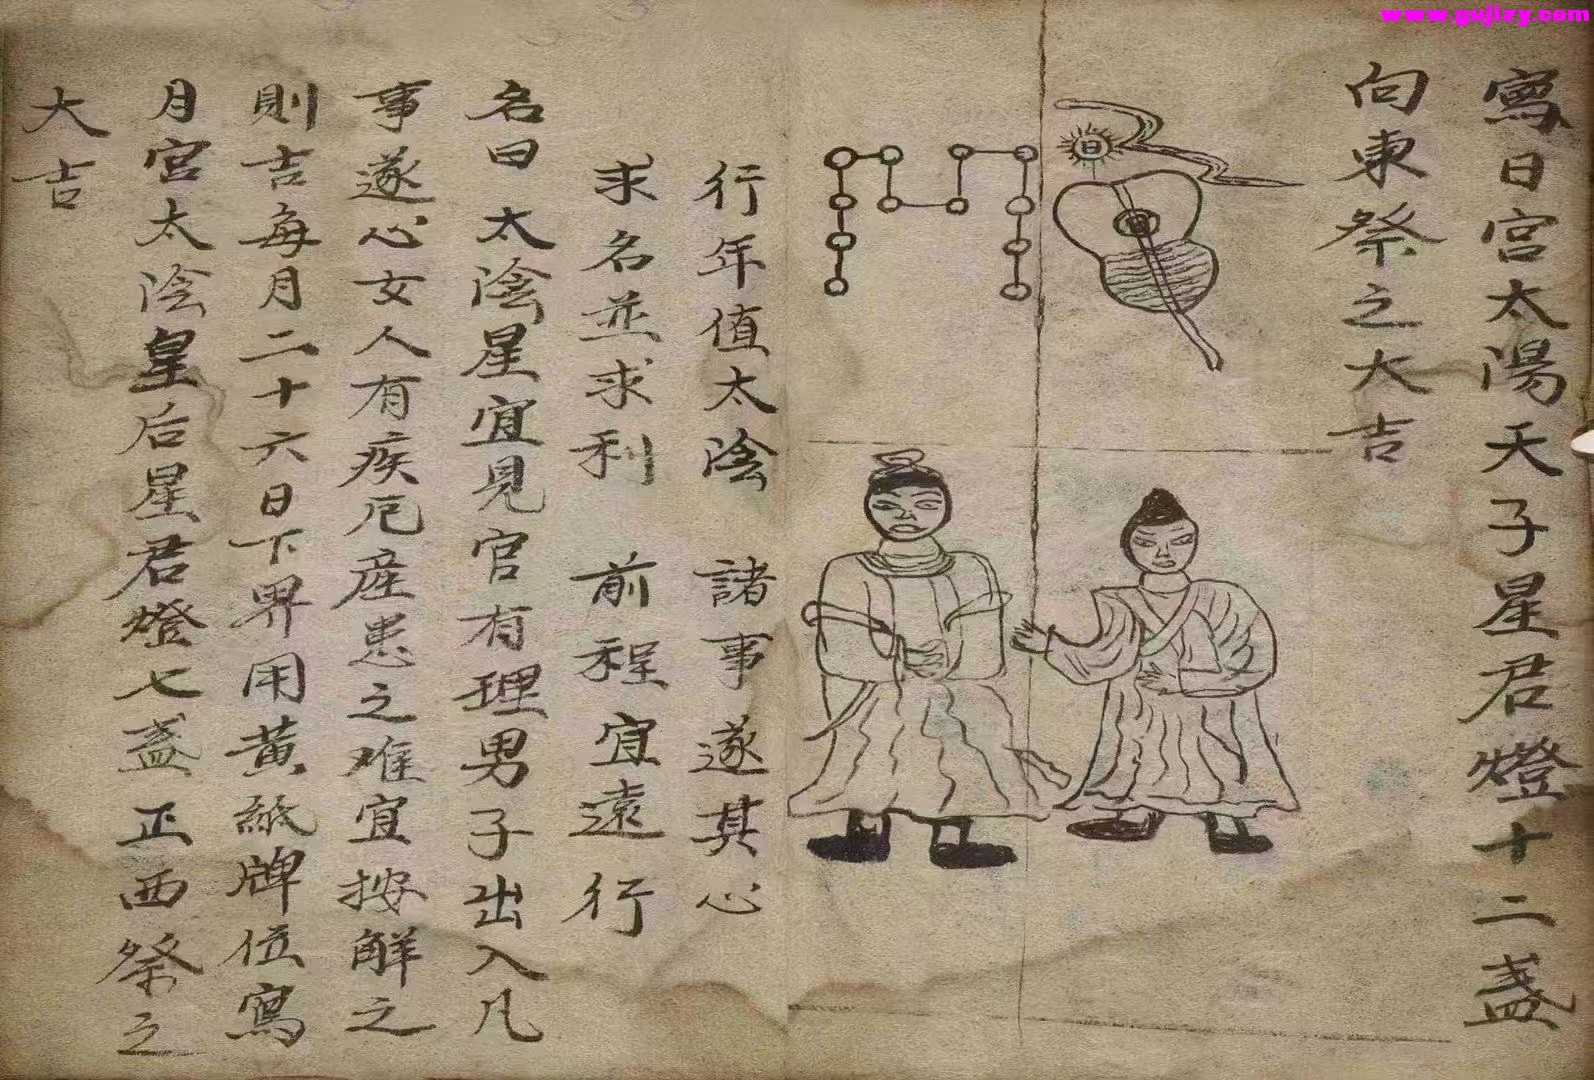 www.gujizy.com
寫日宮太陽天子星君燈十二盞
向東祭之大吉
日
行年值太陰 諸事遂其心
求名並求利 前程宜遠行
名曰太陰星宜見官有理男子出入凡
事遂心女人有疾厄産患之难宜按解之
則吉每月二十六日下界用黃紙牌位寫
月宮太陰皇后星君燈七盞正西祭之
大吉